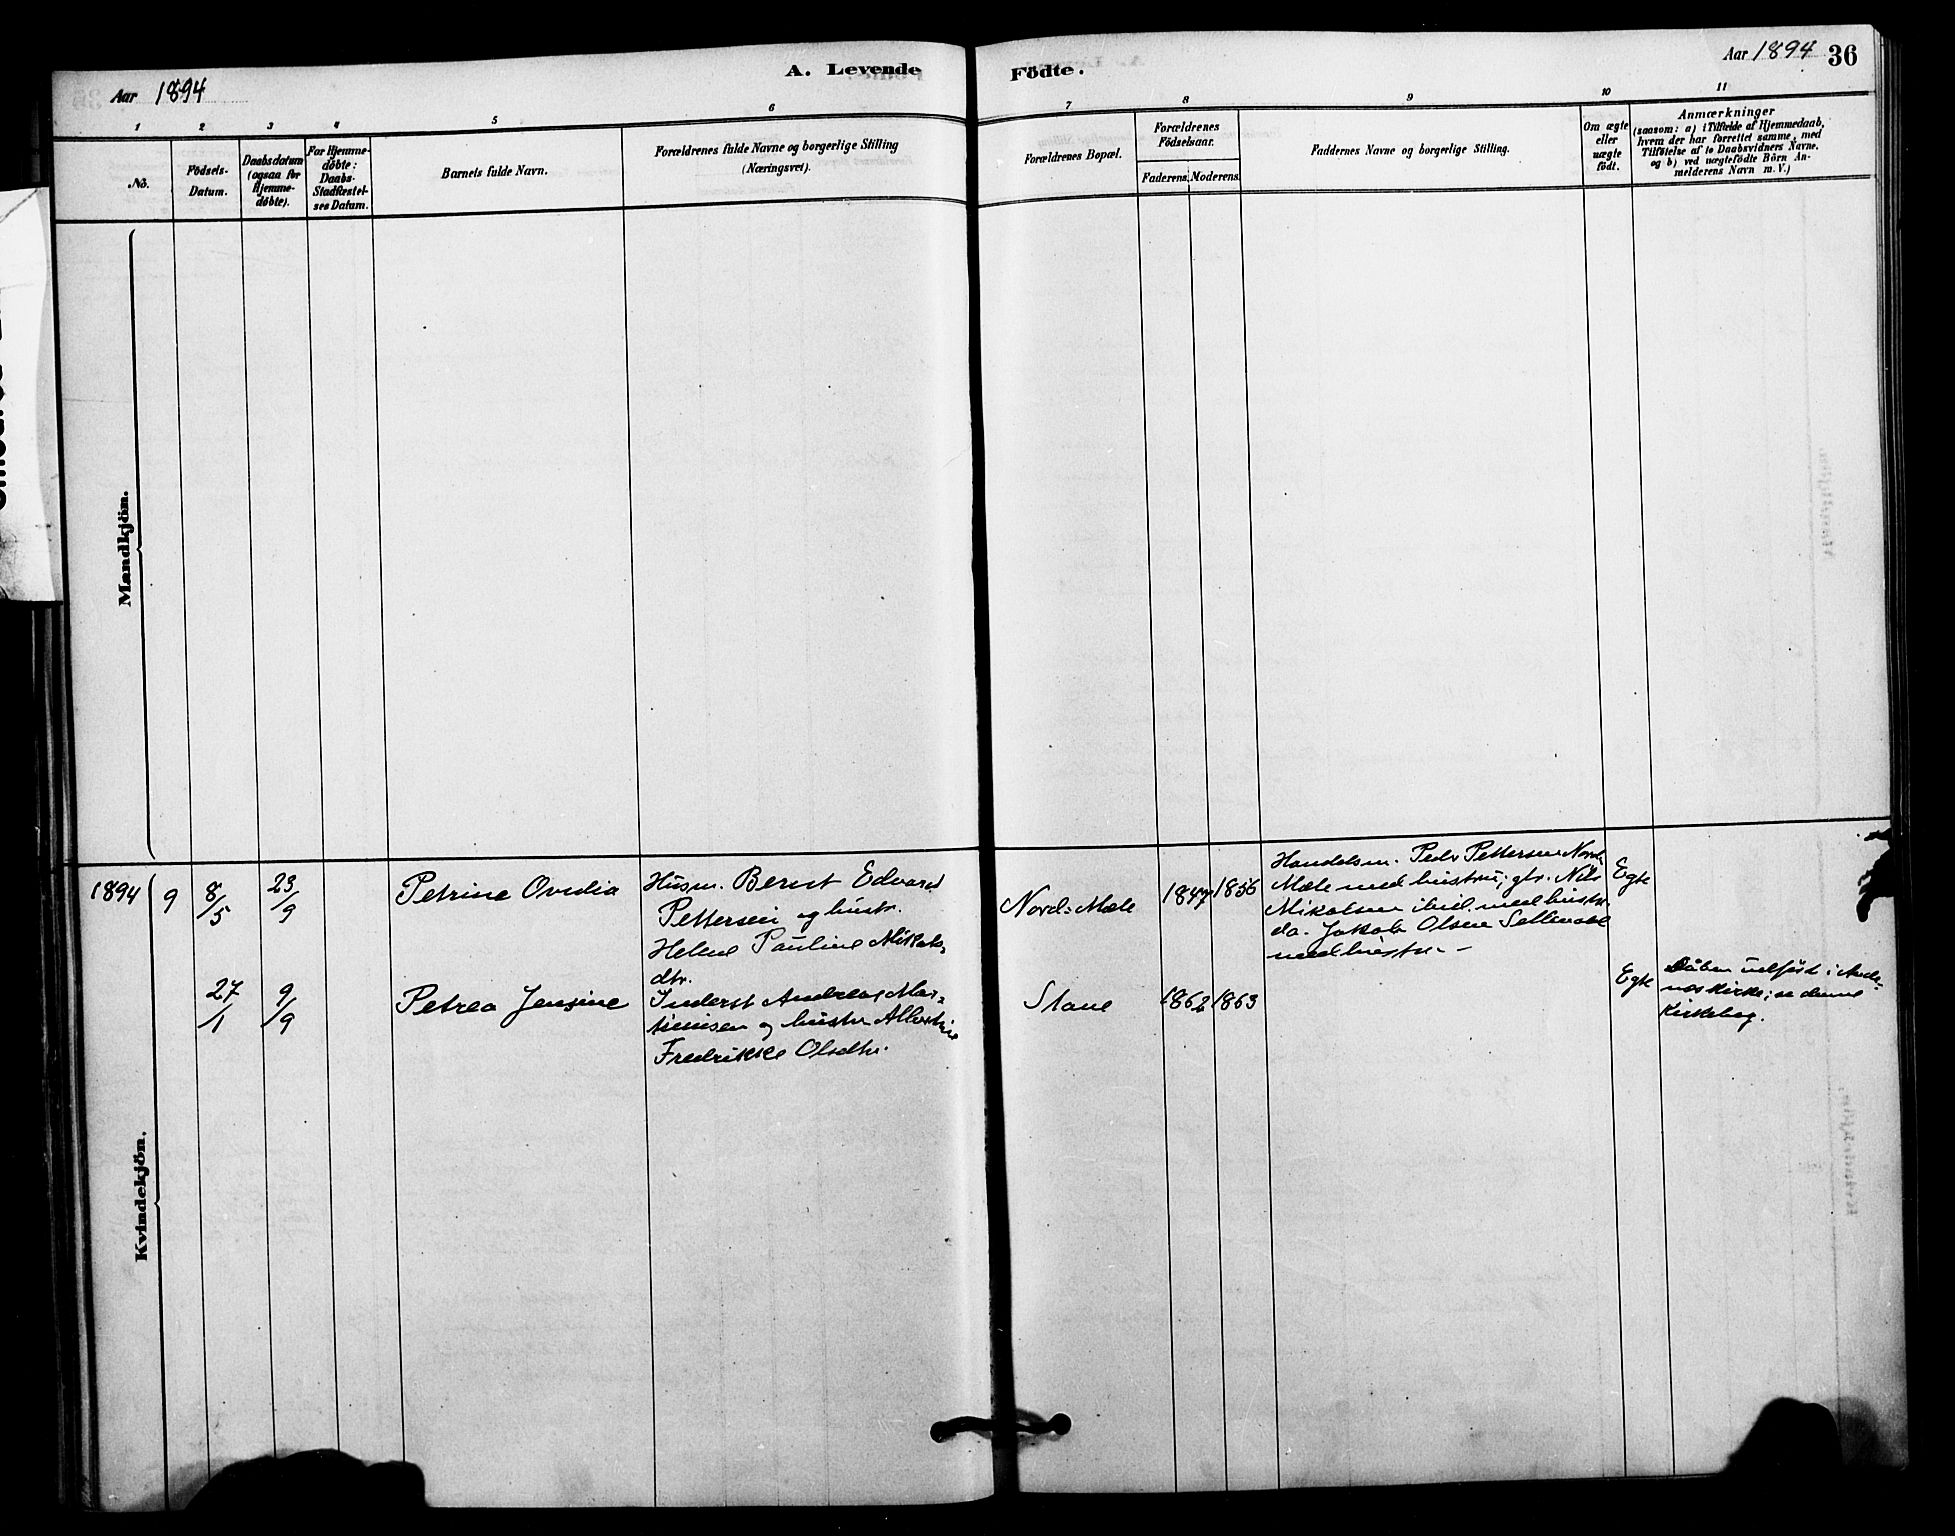 Aar 1894
A. Levende Födte.
Aar 1894 36
1 2 3 4 5 6 7 8 9 10 11
No.
Födsels-
Datum.
Daabsdatum
(ogsaa for
Hjemme-
døbte).
For Hjemme-
døbte:
Daabs-
Stadfæstel-
ses Datum.
Barnets fulde Navn.
Forældrenes fulde Navne og borgerlige Stilling
(Næringsvei).
Forældrenes Bopæl.
Forældrenes
Födselsaar.
Faderens. Moderens.
Faddernes Navne og borgerlige Stilling.
Om ægte
eller
uægte
født.
Anmærkninger
(saasom: a) i Tilfælde af Hjemmedaab,
hvem der har forrettet samme, med
Tilføielse af to Daabsvidners Navne,
og b) ved uægtefødte Börn An-
melderens Navn m. V.)
Mandkjön.
Kvindekjön.
1894 9 8/5 23/9
Petrine Ovedia
Husm. Bernt Edvard
Pettersen og hustr.
Helene Pauline Mikals-
dtr.
Nord-Mæle
1847 1856
Handelsm. Peder Pettersen Nord-
Mæle med hustru; gbr. Nils
Mikalsen ibid. med hustr.
do. Jakob Olsen
med hustr. -
Egte
27/1 9/9
Petrea Jensine
Inderst Andreas Mar-
tinusen og hustr. Albertine
Fredrikke Olsdtr.
Stave
1862 1863
Egte
Dåben udført i Ande-
nes kirke; se denne
Kirkebog.